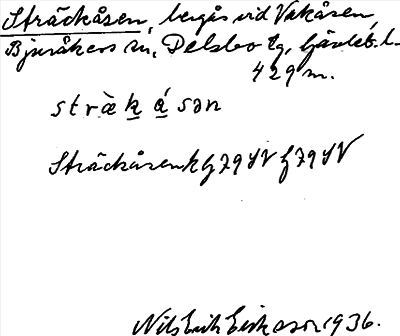 Sträckåsen, bergås vid Vakåsen,
Bjuråkers sn, Delsbo tg, Gävleb. l.
429 m.
sträk åsən
Sträckåsen k G 79 SV G 79 SV
Nils Erik Eriksson 1936.